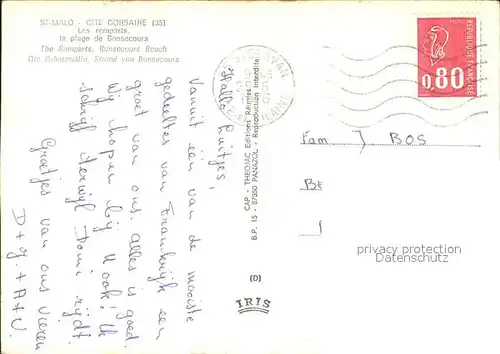 ST-MALO - CITE CORSAIRE (35)
Les remparts,
la plage de Bonsecours
The Ramparts, Bonsecours Beach
Die Ruinenwälle, Strand von Bonsecours
Hallo luitjes,
Vanuit één van de mooiste
gedeeltes van Frankrijk een
groet van ons. Alles is goed.
Wij hopen bij U ook! Ik
schrijf terwijl Domi rijdt
Groetjes van ons vieren
D+J.+A+C.
CAP - THEOJAC Editions Réunies
B.P. 15 - 87350 PANAZOL - Reproduction interdite
(D)
IRIS
REPUBLIQUE FRANÇAISE
0,80
Fam J. BOS
BE
privacy protection
Datenschutz